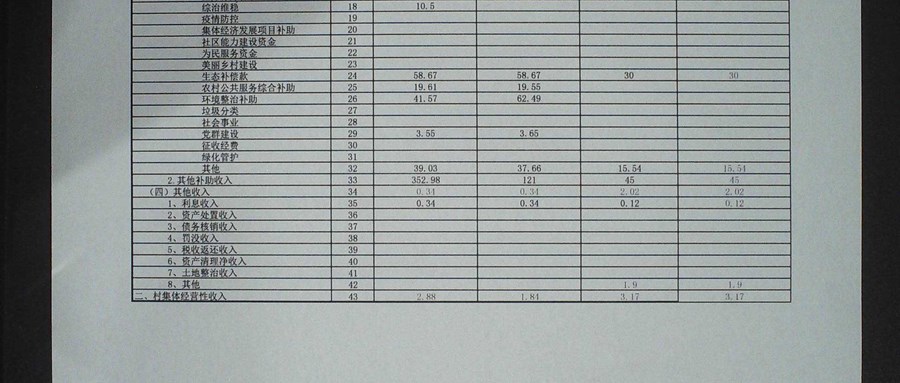 综治维稳 18 10.5
疫情防控 19
集体经济发展项目补助 20
社区能力建设资金 21
为民服务资金 22
美丽乡村建设 23
生态补偿款 24 58.67 58.67 30 30
农村公共服务综合补助 25 19.61 19.55
环境整治补助 26 41.57 62.49
垃圾分类 27
社会事业 28
党群建设 29 3.55 3.65
征收经费 30
绿化管护 31
其他 32 39.03 37.66 15.54 15.54
2.其他补助收入 33 352.98 121 45 45
（四）其他收入 34 0.34 0.34 2.02 2.02
1、利息收入 35 0.34 0.34 0.12 0.12
2、资产处置收入 36
3、债务核销收入 37
4、罚没收入 38
5、税收返还收入 39
6、资产清理净收入 40
7、土地整治收入 41
8、其他 42 1.9 1.9
二、村集体经营性收入 43 2.88 1.84 3.17 3.17